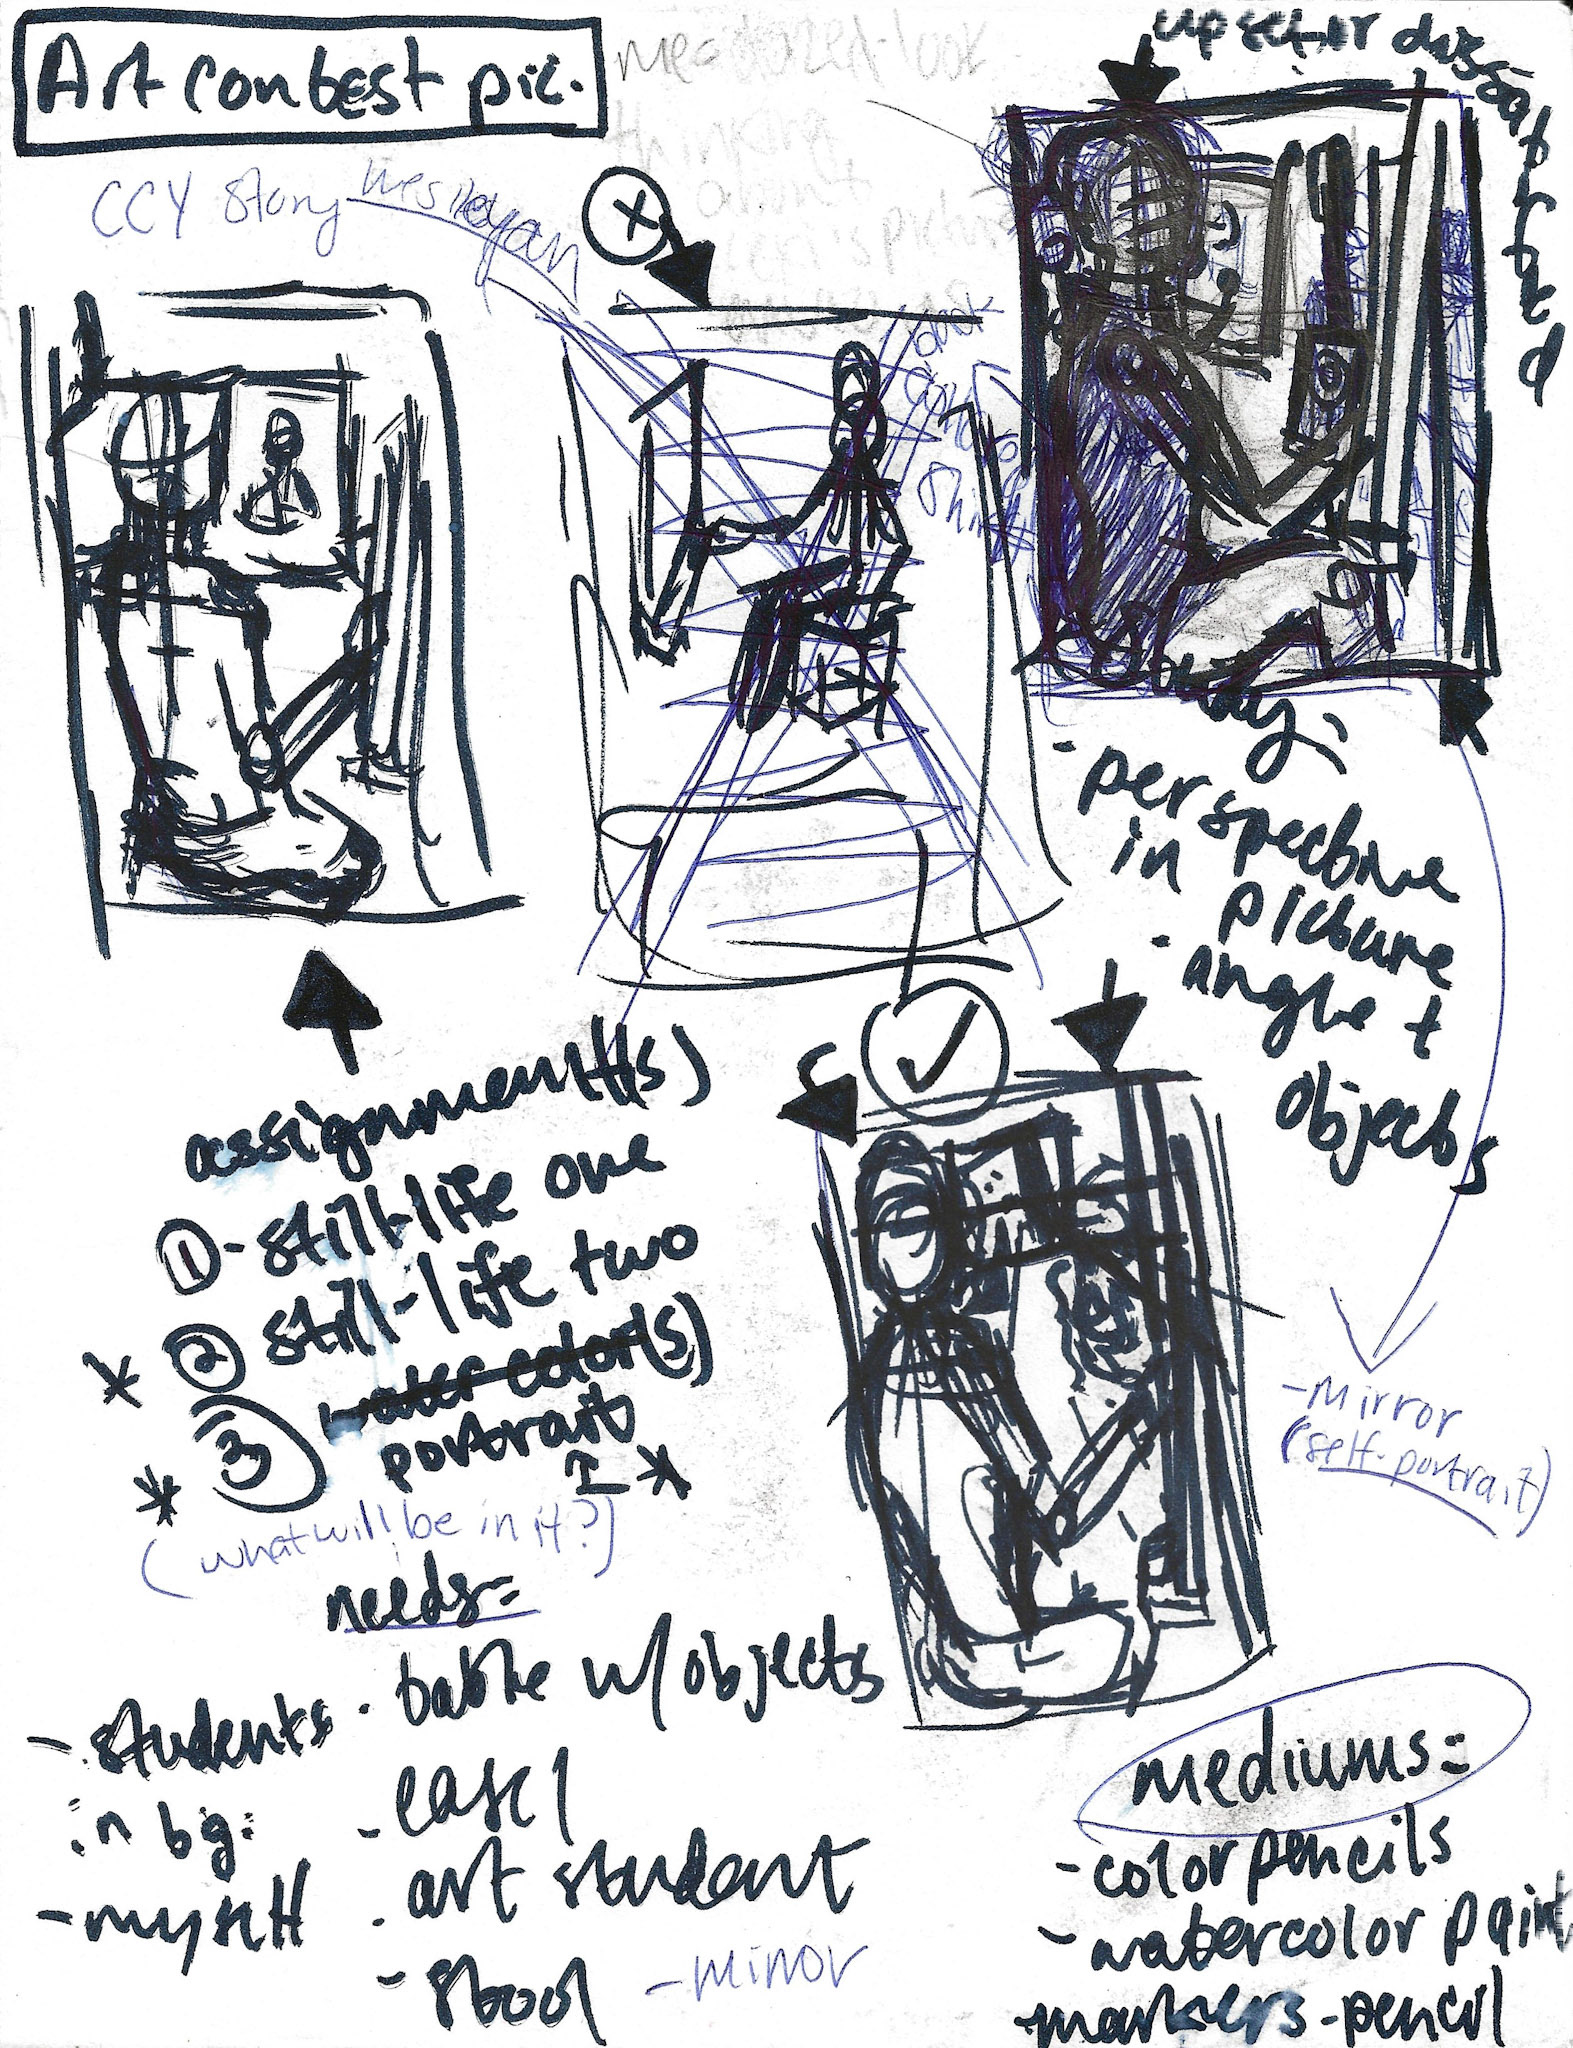 Art contest pic.
upset or dissatisfied
CCY Story Wesleyan
thinking
about
study:
- perspective
in
picture
- angle +
objects
assignment(s)
① - still-life one
* ② still-life two
* ③ water color(s)
portrait *
(what will be in it?)
needs=
- table w/ objects
- easel
- art student
- stool - mirror
- students
in bg:
- myself
- mirror
(self-portrait)
mediums=
- color pencils
- watercolor paint
- markers - pencil